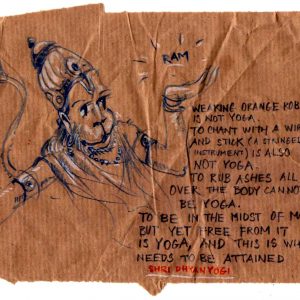 RAM
WEARING ORANGE ROB
IS NOT YOGA.
TO CHANT WITH A WIR
AND STICK (A STRINGED
INSTRUMENT) IS ALSO
NOT YOGA.
TO RUB ASHES ALL
OVER THE BODY CANNOT
BE YOGA.
TO BE IN THE MIDST OF MA
BUT YET FREE FROM IT
IS YOGA, AND THIS IS WH
NEEDS TO BE ATTAINED
SHRI DHYANYOGI